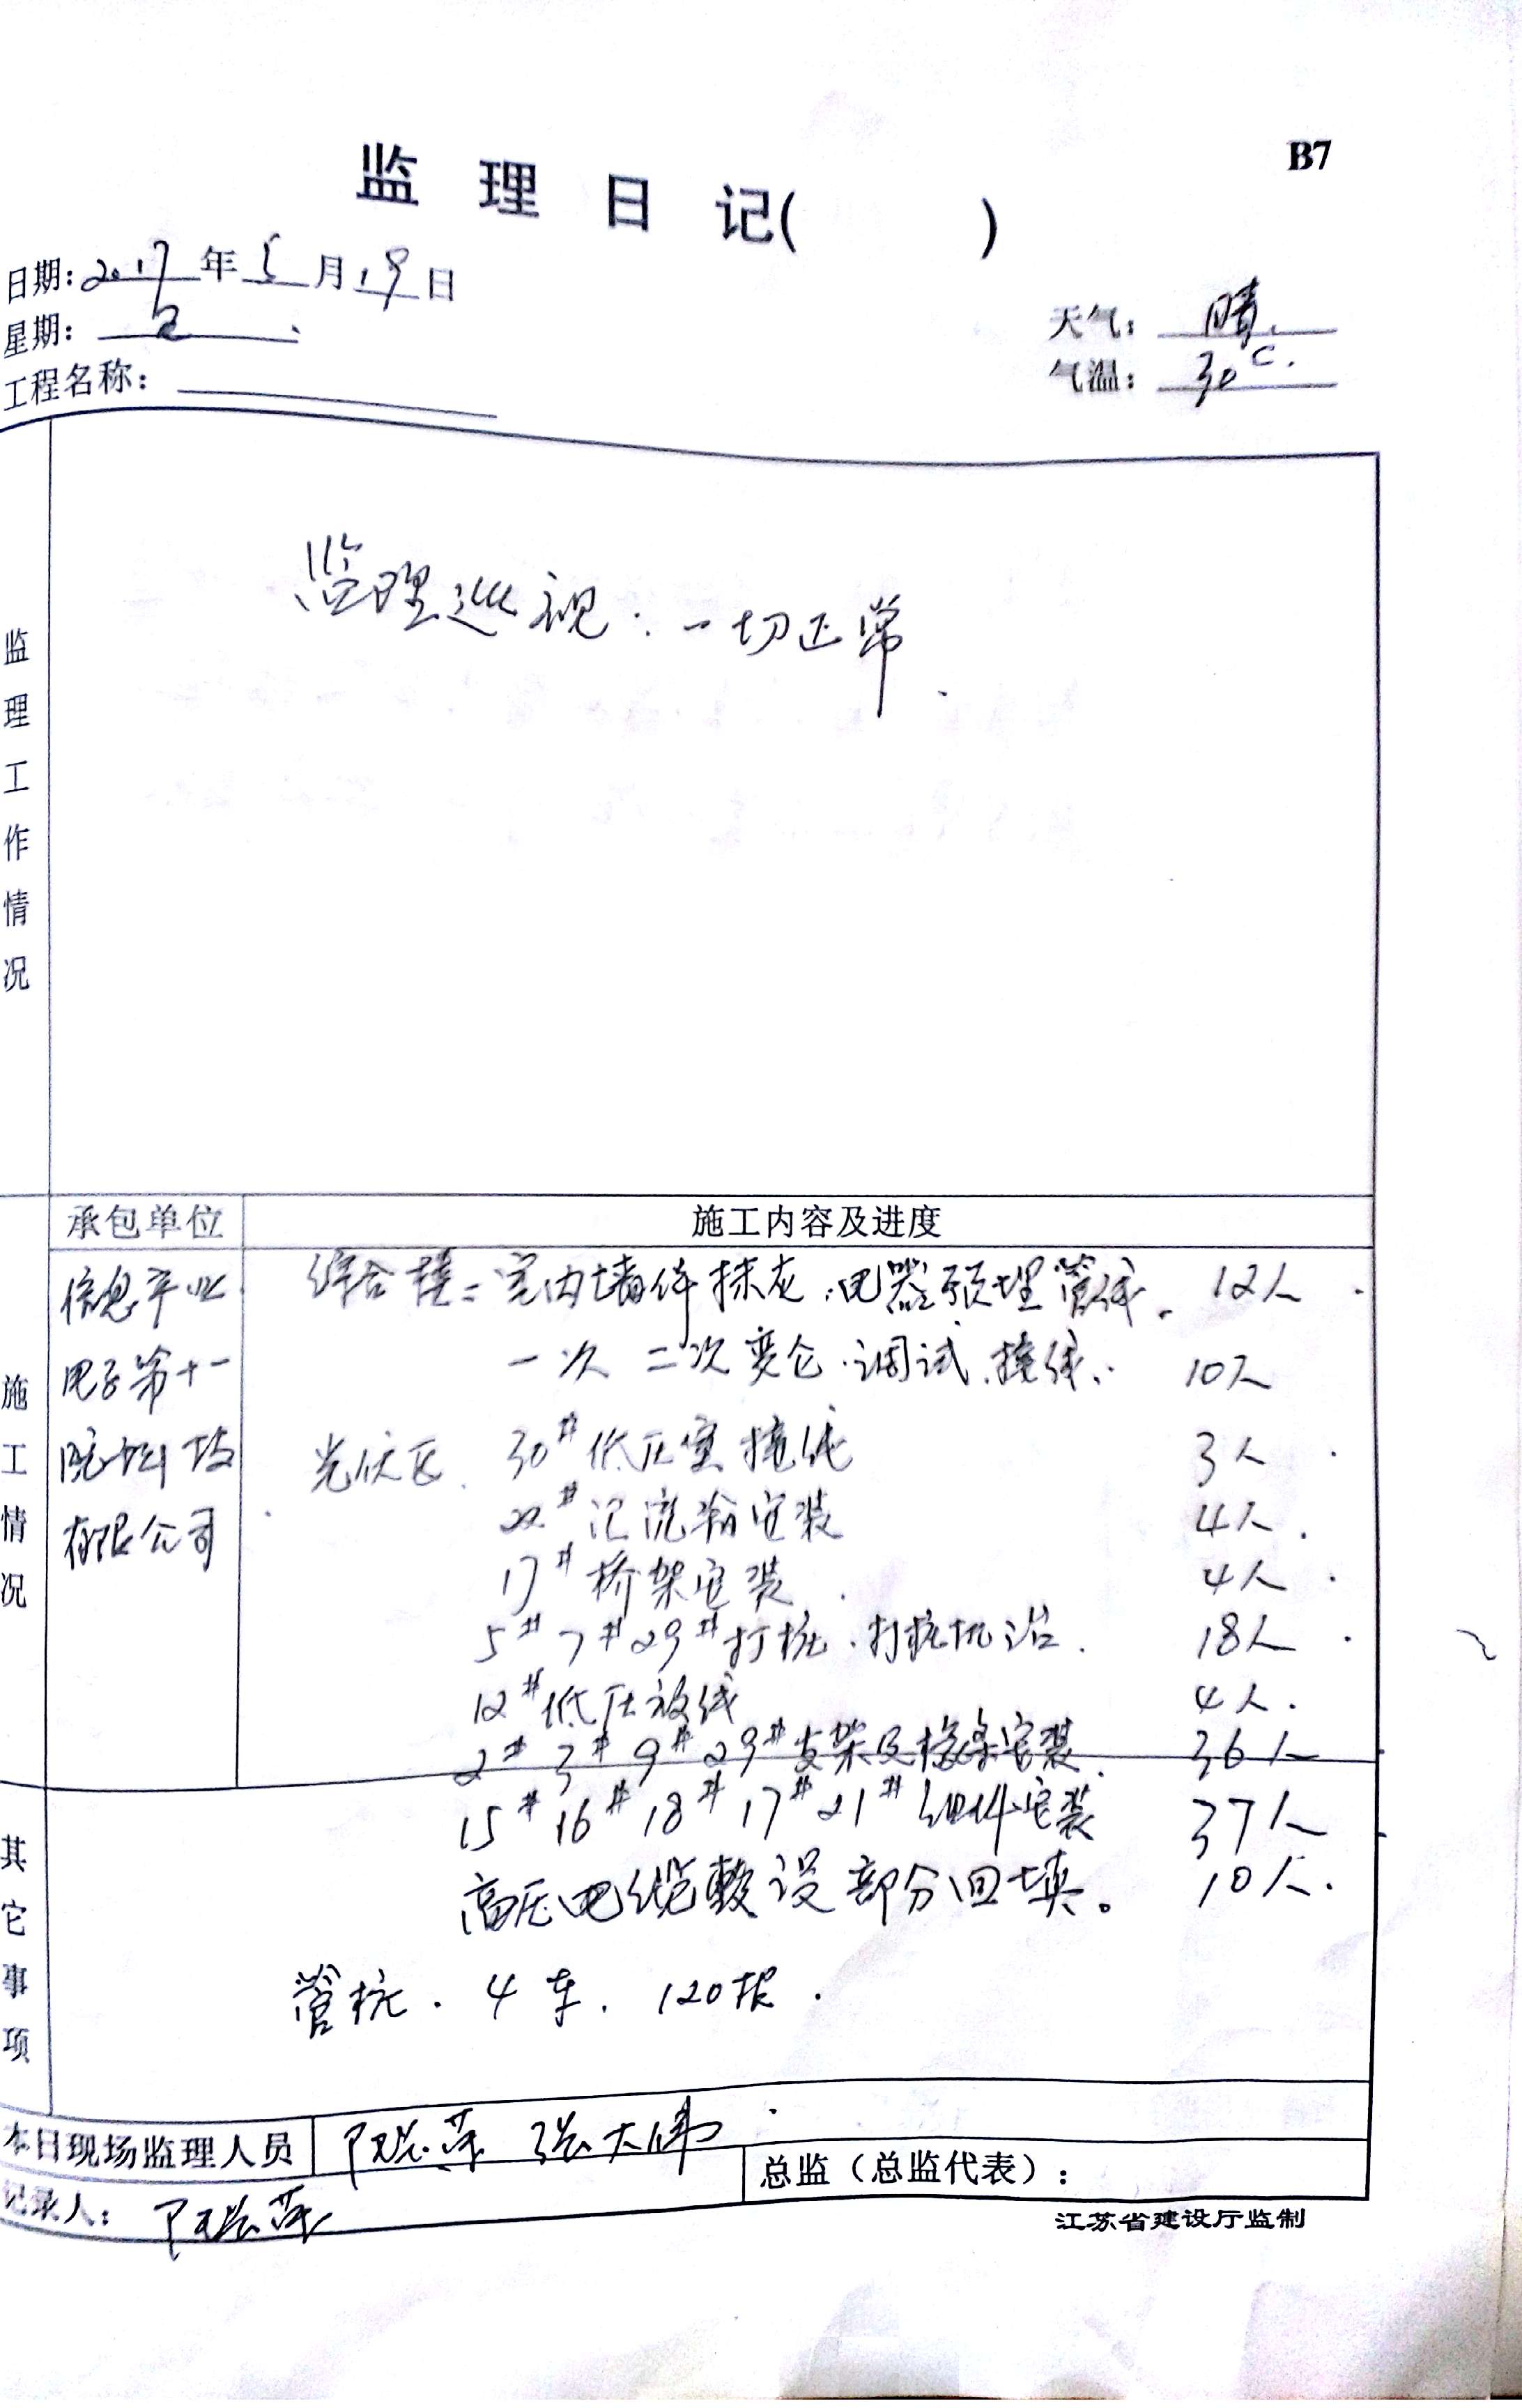 B7
监理日记( )
日期:2017年5月19日
星期:五
天气:晴.
气温:30℃.
工程名称:
监理工作情况
监理巡视:一切正常.
承包单位 施工内容及进度
施工情况
信息产业
电子第十一
院科技
有限公司
综合楼:室内墙体抹灰.电器预埋管线. 12人.
一次 二次变仓.调试.接线. 10人
光伏区. 30#低压室接线 3人.
22#汇流箱安装 4人.
17#桥架安装. 4人.
5# 7# 29#打桩.打桩机 18人.
12#低压放线 4人.
2# 3# 9# 29#支架及檩条安装. 36人
15# 16# 18# 17# 21#组件安装 37人
高压电缆敷设部分回填。 10人.
其它事项
管桩. 4车. 120根.
本日现场监理人员 张大伟
记录人:
总监(总监代表):
江苏省建设厅监制